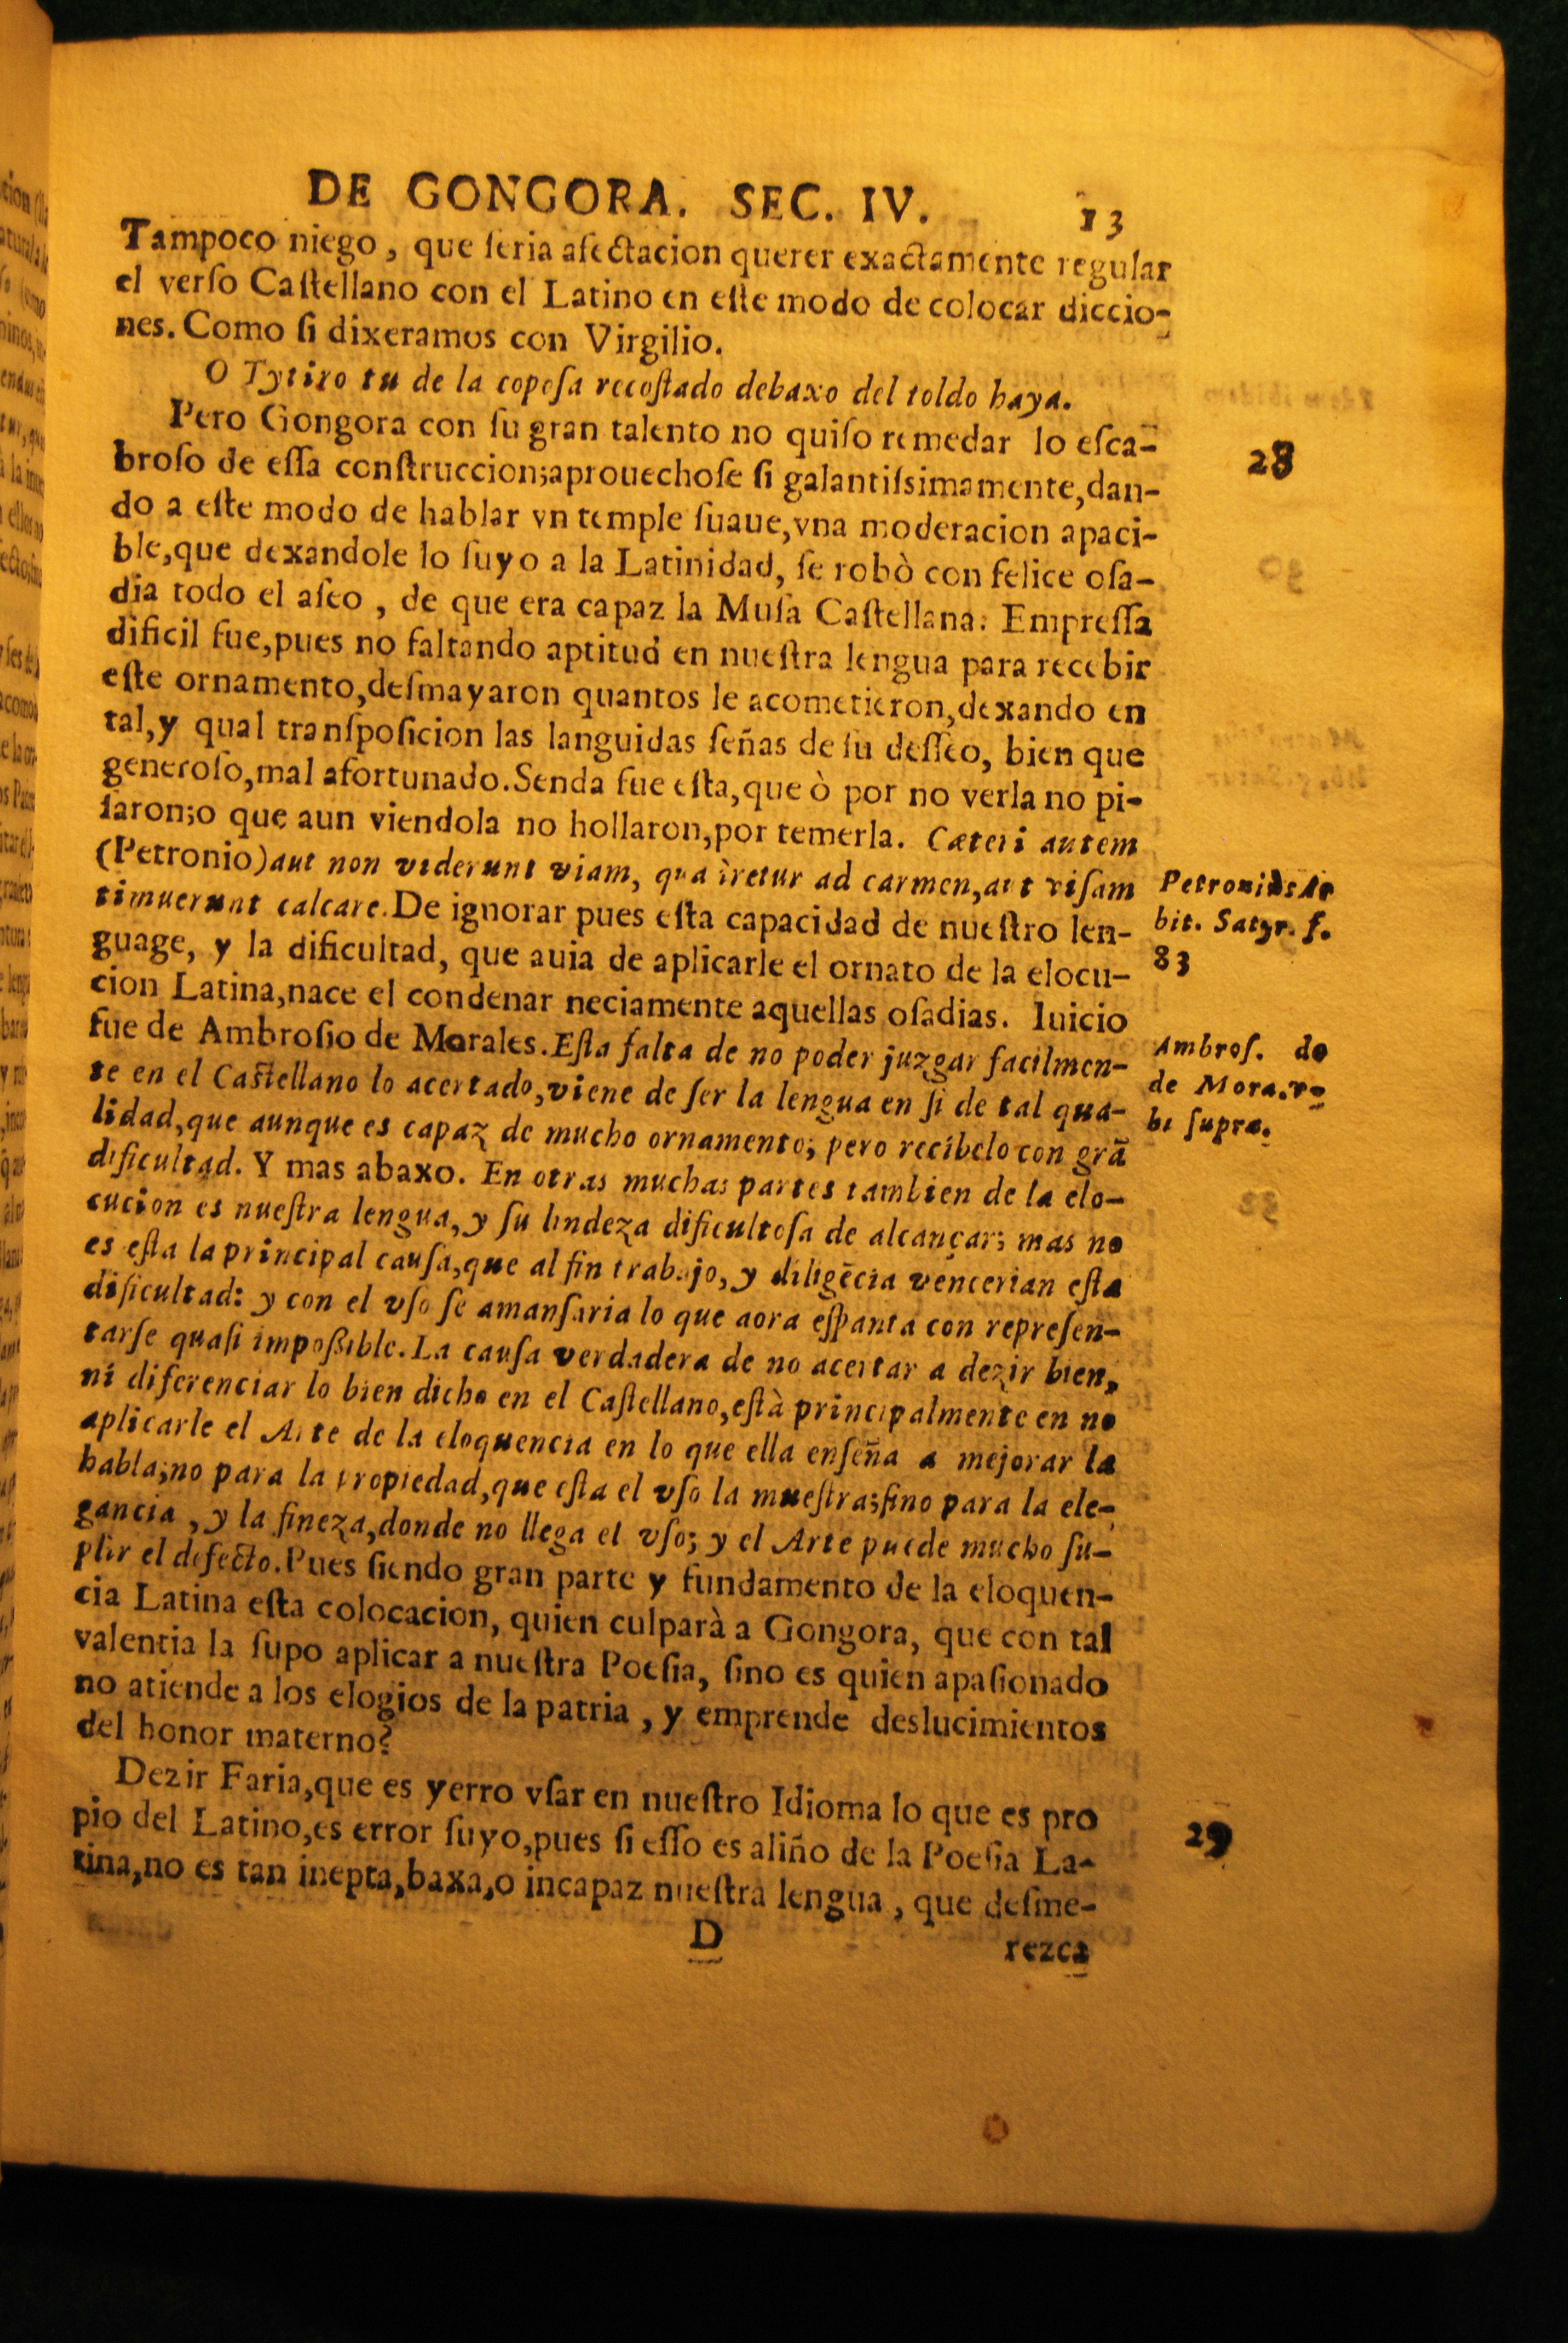 DE GONGORA. SEC. IV. 13
Tampoco niego, que ſeria afectacion querer exactamente regular
el verſo Caſtellano con el Latino en eſte modo de colocar diccio-
nes. Como ſi dixeramos con Virgilio.
O Tytiro tu de la copoſa recoſtado debaxo del toldo haya.
Pero Gongora con ſu gran talento no quiſo remedar lo eſca-
28
broſo de eſſa conſtruccion;aprouechoſe ſi galantiſsimamente,dan-
do a eſte modo de hablar vn temple ſuaue,vna moderacion apaci-
ble,que dexandole lo ſuyo a la Latinidad, ſe robò con felice oſa-
dia todo el aſeo, de que era capaz la Muſa Caſtellana: Empreſſa
dificil fue,pues no faltando aptitud en nueſtra lengua para recebir
eſte ornamento,deſmayaron quantos le acometieron,dexando en
tal,y qual tranſpoſicion las languidas ſeñas de ſu deſſeo, bien que
generoſo,mal afortunado.Senda fue eſta,que ò por no verla no pi-
ſaron;o que aun viendola no hollaron,por temerla. Cæteri autem
(Petronio)aut non viderunt viam, qua iretur ad carmen,aut viſam
timuerunt calcare.De ignorar pues eſta capacidad de nueſtro len-
Petronius Ar
bit. Satyr. f.
83
guage, y la dificultad, que auia de aplicarle el ornato de la elocu-
cion Latina,nace el condenar neciamente aquellas oſadias. Iuicio
fue de Ambroſio de Morales.Eſta falta de no poder juzgar facilmen-
te en el Caſtellano lo acertado,viene de ſer la lengua en ſi de tal qua-
Ambroſ. de
de Mora.v-
bi ſupra.
lidad,que aunque es capaz de mucho ornamento; pero recibelo con grã
dificultad. Y mas abaxo. En otras muchas partes tambien de la elo-
cucion es nueſtra lengua,y ſu lindeza dificultoſa de alcançar; mas no
es eſta la principal cauſa,que al fin trabajo,y diligẽcia vencerian eſta
dificultad: y con el vſo ſe amanſaria lo que aora eſpanta con repreſen-
tarſe quaſi impoßible.La cauſa verdadera de no acertar a dezir bien,
ni diferenciar lo bien dicho en el Caſtellano,eſtà principalmente en no
aplicarle el Arte de la eloquencia en lo que ella enſeña a mejorar la
habla;no para la propiedad,que eſta el vſo la mueſtra;ſino para la ele-
gancia, y la fineza,donde no llega el vſo; y el Arte puede mucho ſu-
plir el defecto.Pues ſiendo gran parte y fundamento de la eloquen-
cia Latina eſta colocacion, quien culparà a Gongora, que con tal
valentia la ſupo aplicar a nueſtra Poeſia, ſino es quien apaſionado
no atiende a los elogios de la patria, y emprende deslucimientos
del honor materno?
Dezir Faria,que es yerro vſar en nueſtro Idioma lo que es pro
pio del Latino,es error ſuyo,pues ſi eſſo es aliño de la Poeſia La-
29
tina,no es tan inepta,baxa,o incapaz nueſtra lengua, que deſme-
D
rezca